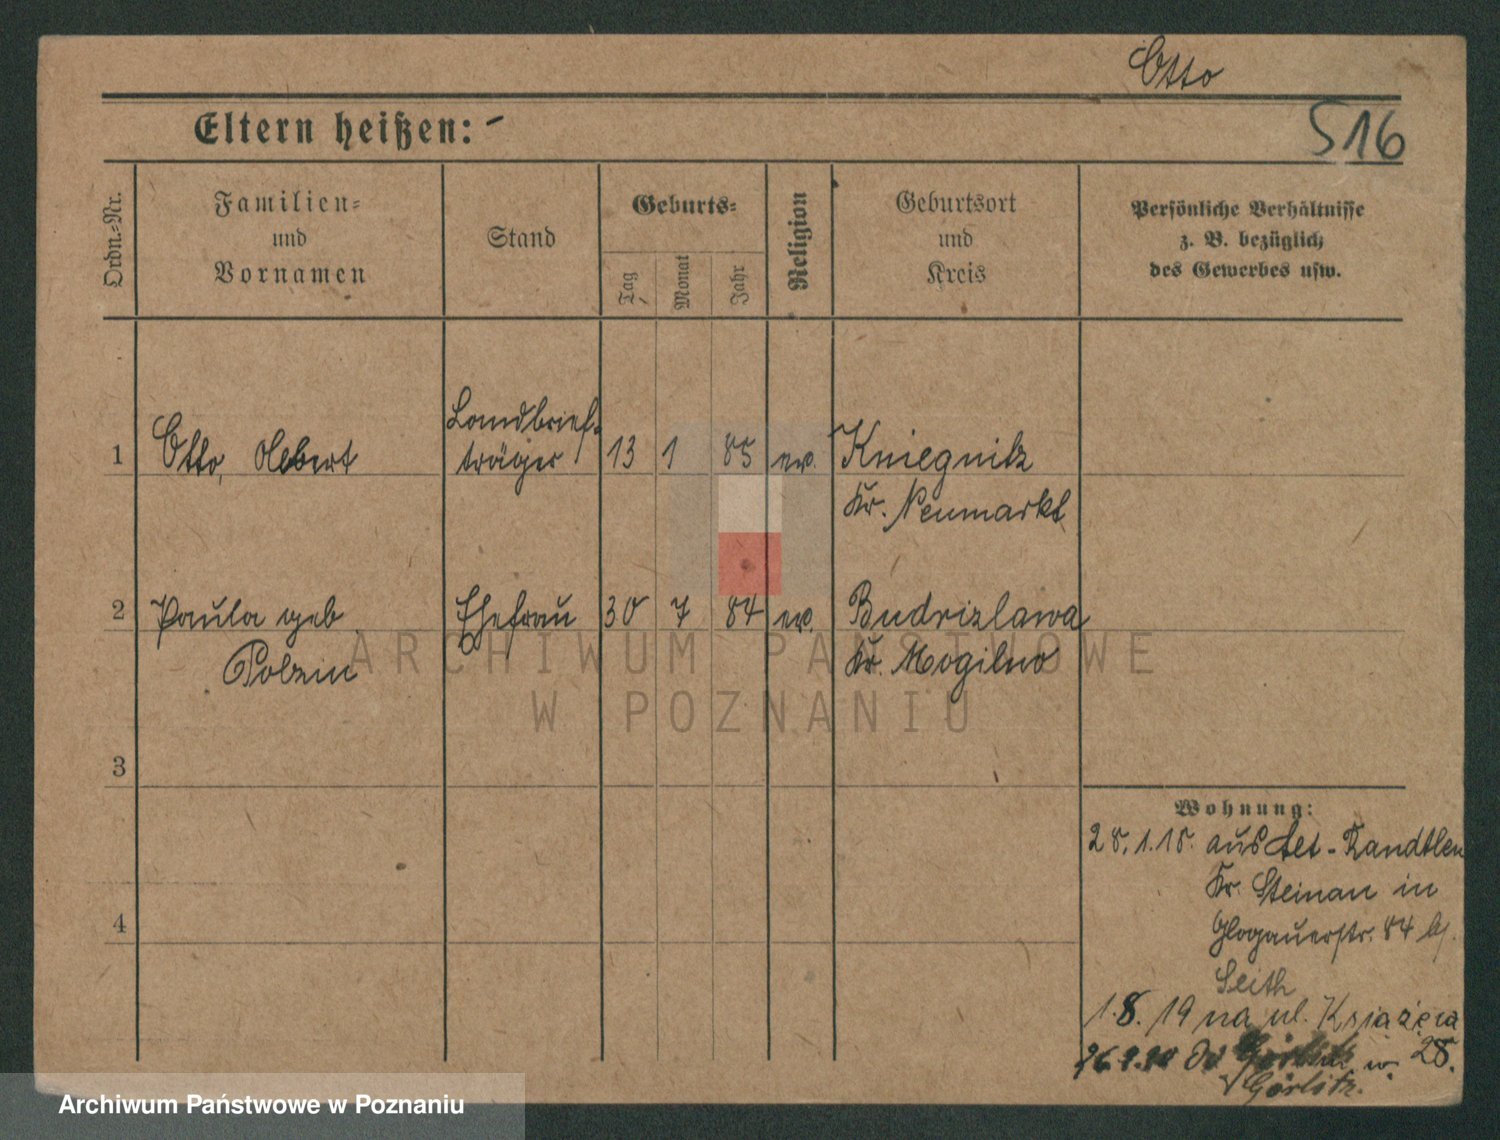 Otto
Eltern heißen: -
516
Ordn.-Nr.
Familien-
und
Vornamen
Stand
Geburts-
Tag
Monat
Jahr
Religion
Geburtsort
und
Kreis
Persönliche Verhältnisse
z. B. bezüglich
des Gewerbes usw.
Landbrief-
1 Otto, träger 13 1 85 ev. Kniegnitz
Kr. Neumarkt
2 Paula geb Ehefrau 30 7 84 ev. Budzislawa
Polzin Kr. Mogilno
ARCHIWUM PAŃSTWOWE
W POZNANIU
3
Wohnung:
28.1.18. aus
Kr. Steinau in
4
Glogauerstr. 84 b/.
Leith
1.8.19 na ul. Książęca
28.
Görlitz.
Archiwum Państwowe w Poznaniu